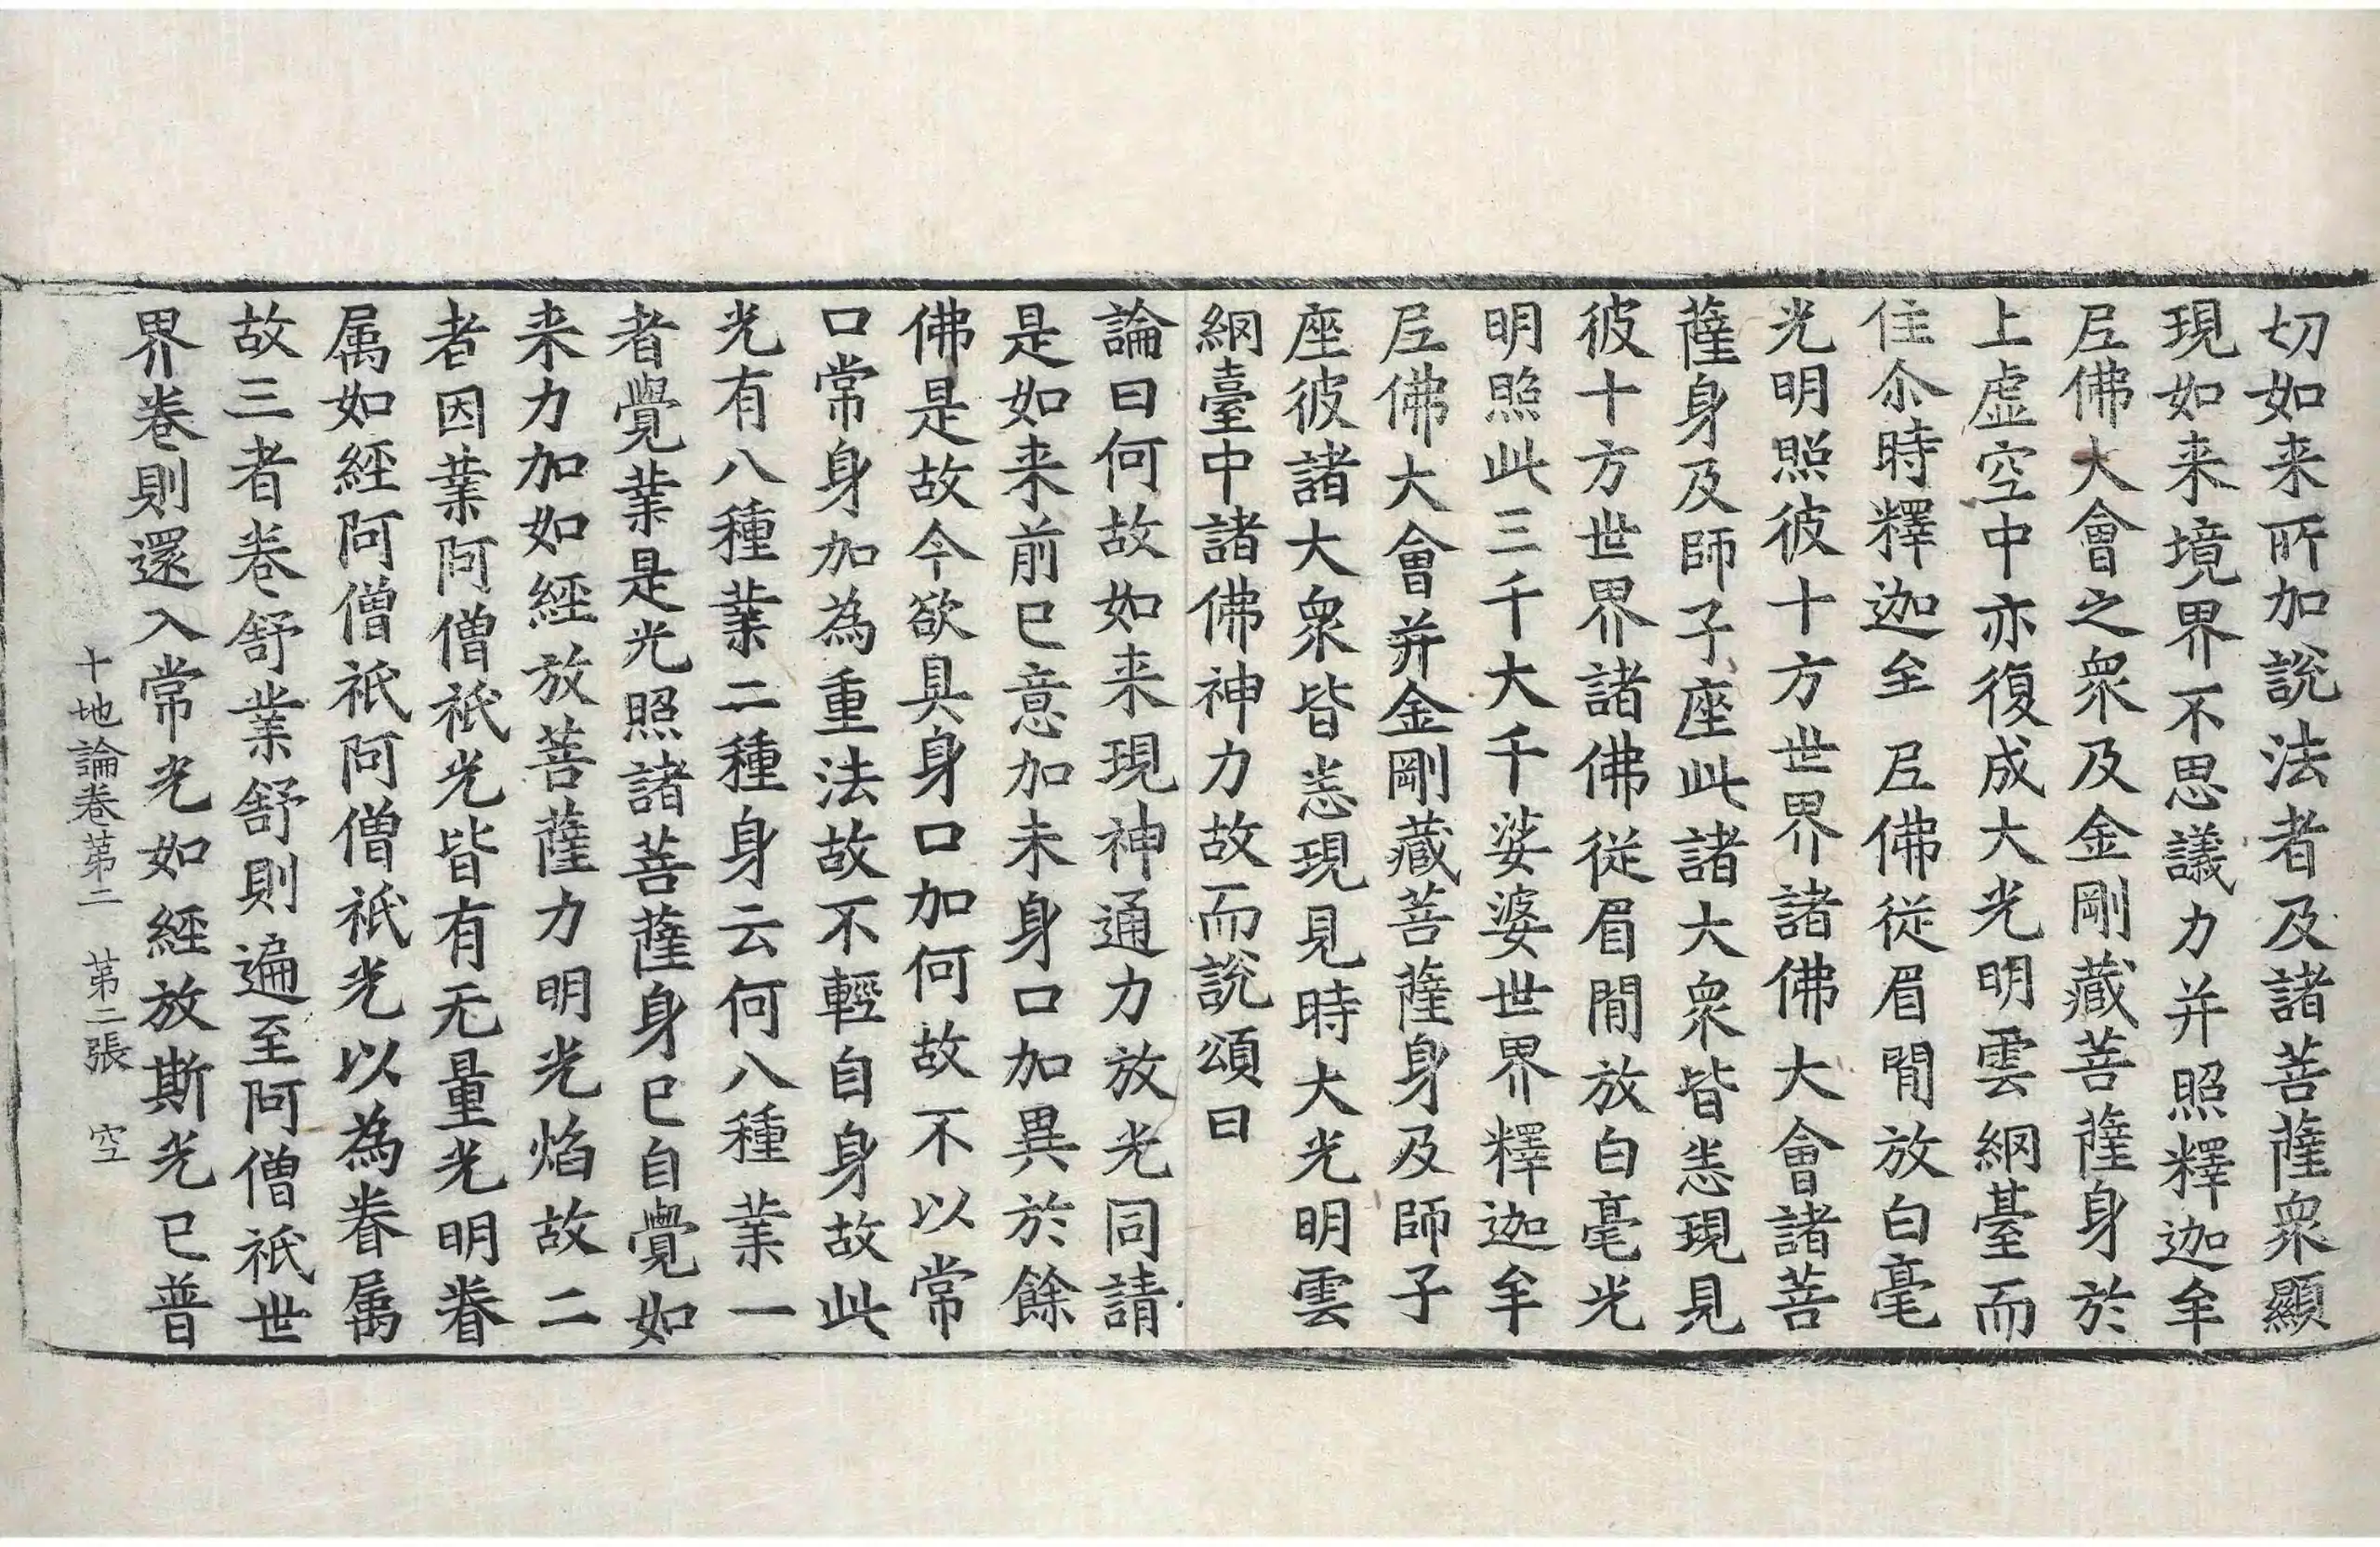 切如来所加說法者及諸菩薩衆顯
現如来境界不思議力并照釋迦牟
𡰱佛大會之衆及金剛藏菩薩身於
上虛空中亦復成大光明雲網臺而
住尒時釋迦牟𡰱佛從眉閒放白毫
光明照彼十方世界諸佛大會諸菩
薩身及師子座此諸大衆皆悉現見
彼十方世界諸佛從眉閒放白毫光
明照此三千大千娑婆世界釋迦牟
𡰱佛大會并金剛藏菩薩身及師子
座彼諸大衆皆悉現見時大光明雲
網臺中諸佛神力故而說頌曰
論曰何故如来現神通力放光同請
是如来前已意加未身口加異於餘
佛是故今欲具身口加何故不以常
口常身加為重法故不輕自身故此
光有八種業二種身云何八種業一
者覺業是光照諸菩薩身已自覺如
来力加如經放菩薩力明光焰故二
者因業阿僧祇光皆有无量光明眷
属如經阿僧祇阿僧祇光以為眷属
故三者卷舒業舒則遍至阿僧祇世
界卷則還入常光如經放斯光已普
十地論卷第二　第二張　空